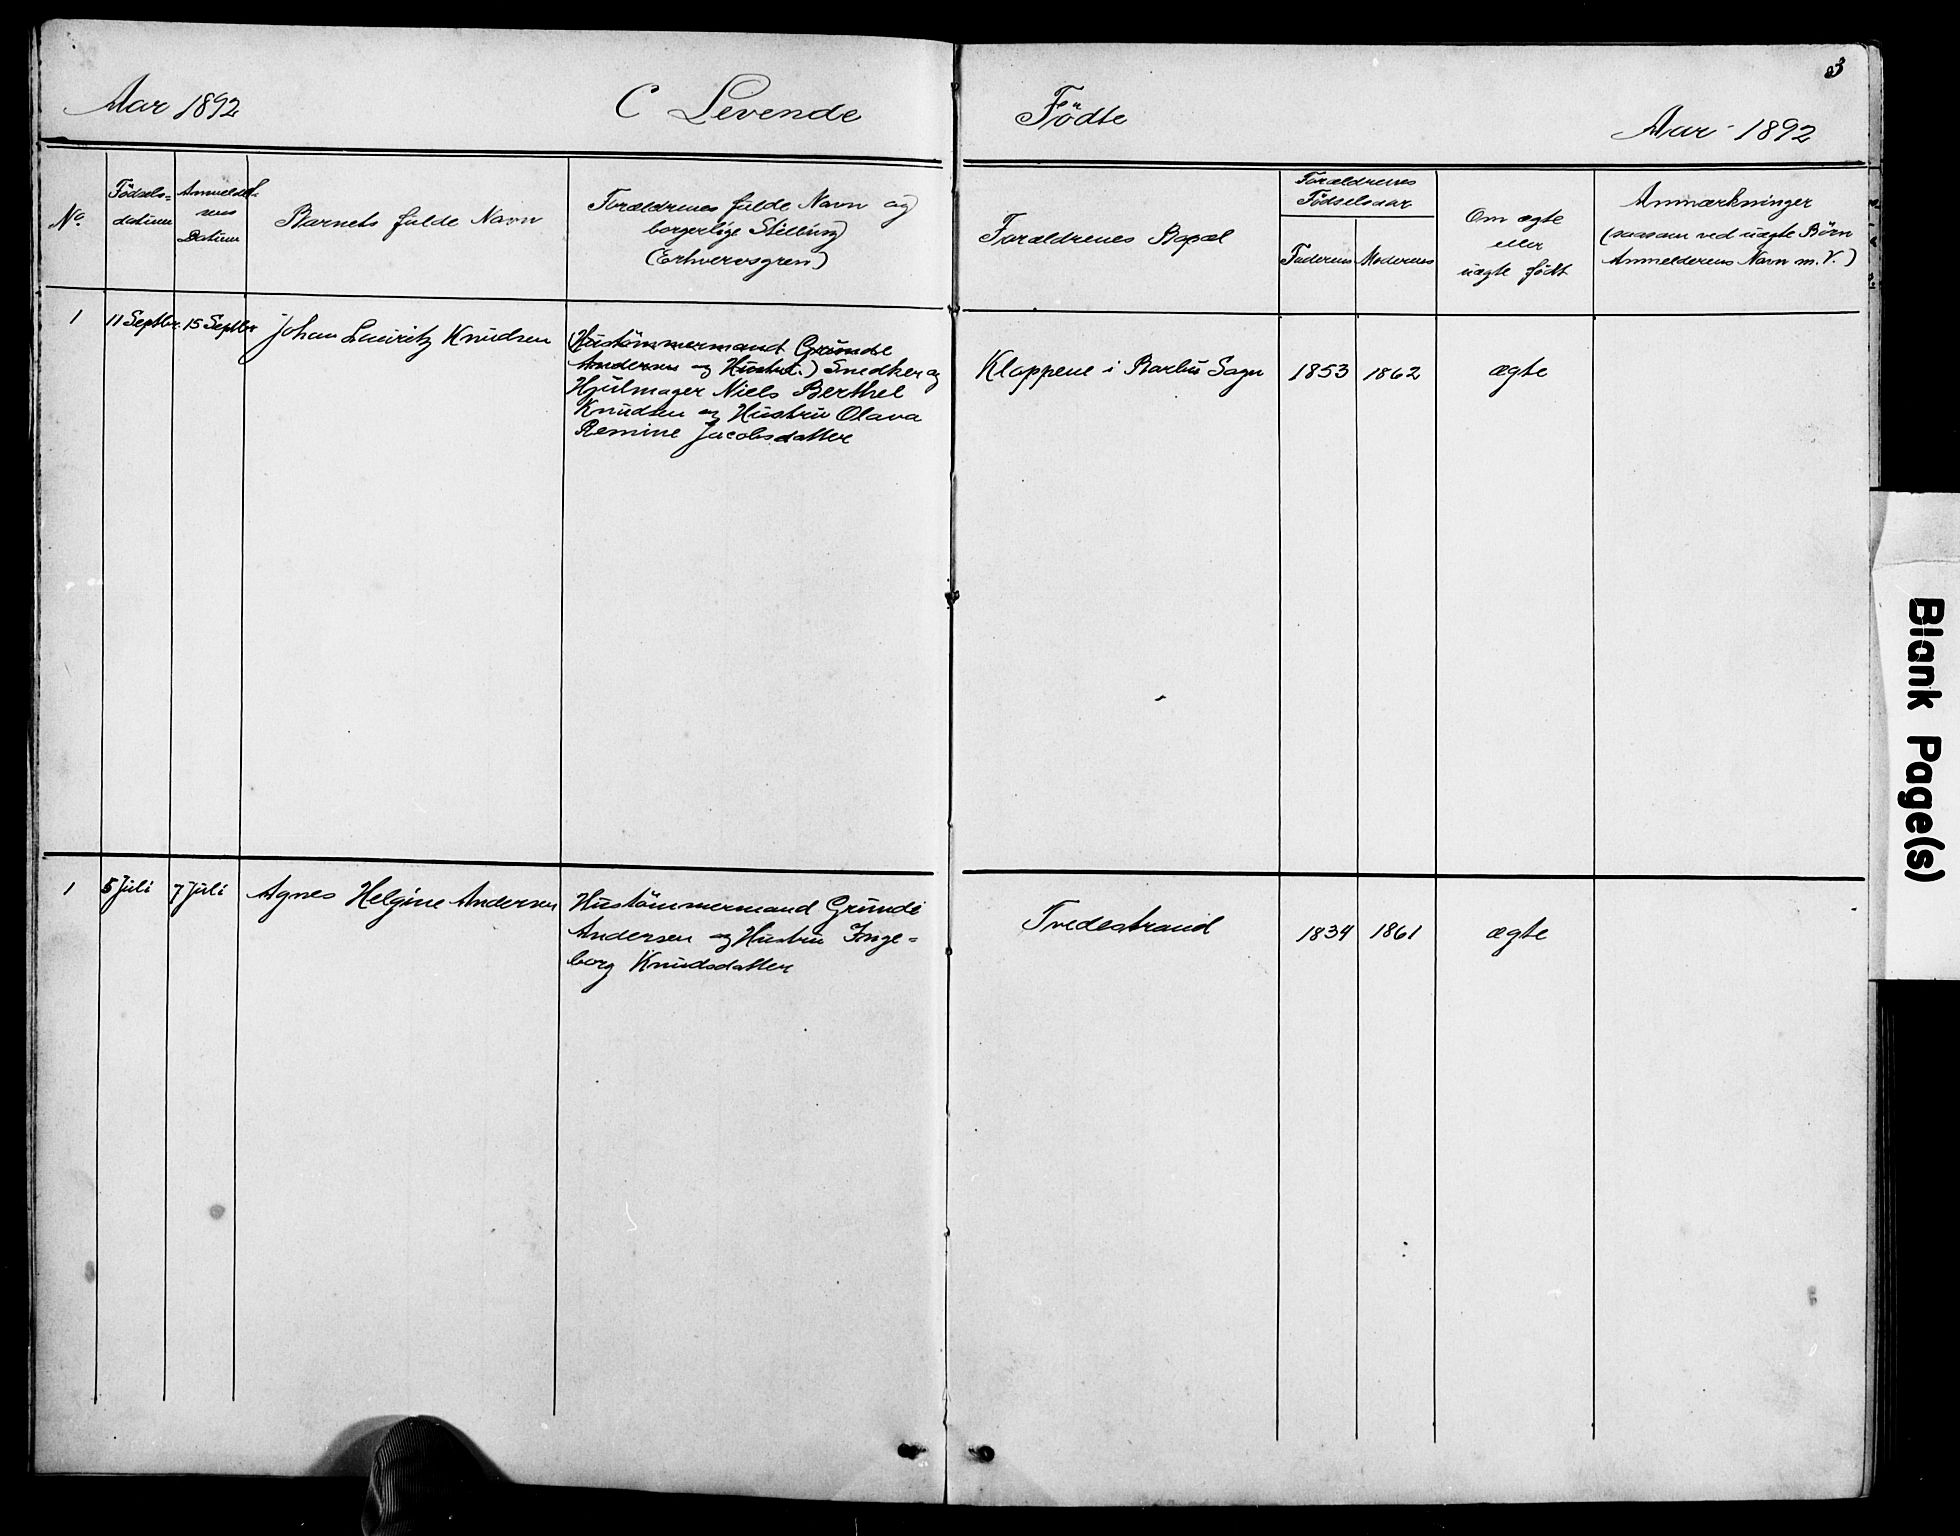 3
Aar 1892
C Levende
Födte
Aar 1892
No.
Födsels-
datum
Anmeldel-
sens
Datum
Barnets fulde Navn
Forældrenes fulde Navn og
borgerlige Stilling
(Erhvervsgren)
Forældrenes Bopæl
Forældrenes
Födselsaar
Faderens
Moderens
Om ægte
eller
uægte födt
Anmærkninger
(saasom ved uægte Börn
Anmelderens Navn m. V.)
1
11 Septbr.
15 Septbr
Johan Lauritz Knudsen
(Hustömmermand Grunde
Andersen og Hustru.) Snedker og
Hjulmager Niels Berthel
Knudsen og Hustru Olava
Remine Jacobsdatter
Kloppene i Barbu Sogn
1853
1862
ægte
1
5 Juli
7 Juli
Agnes Helgine Andersen
Hustömmermand Grunde
Andersen og Hustru Inge-
borg Knudsdatter
Tvedestrand
1834
1861
ægte
Blank Page(s)